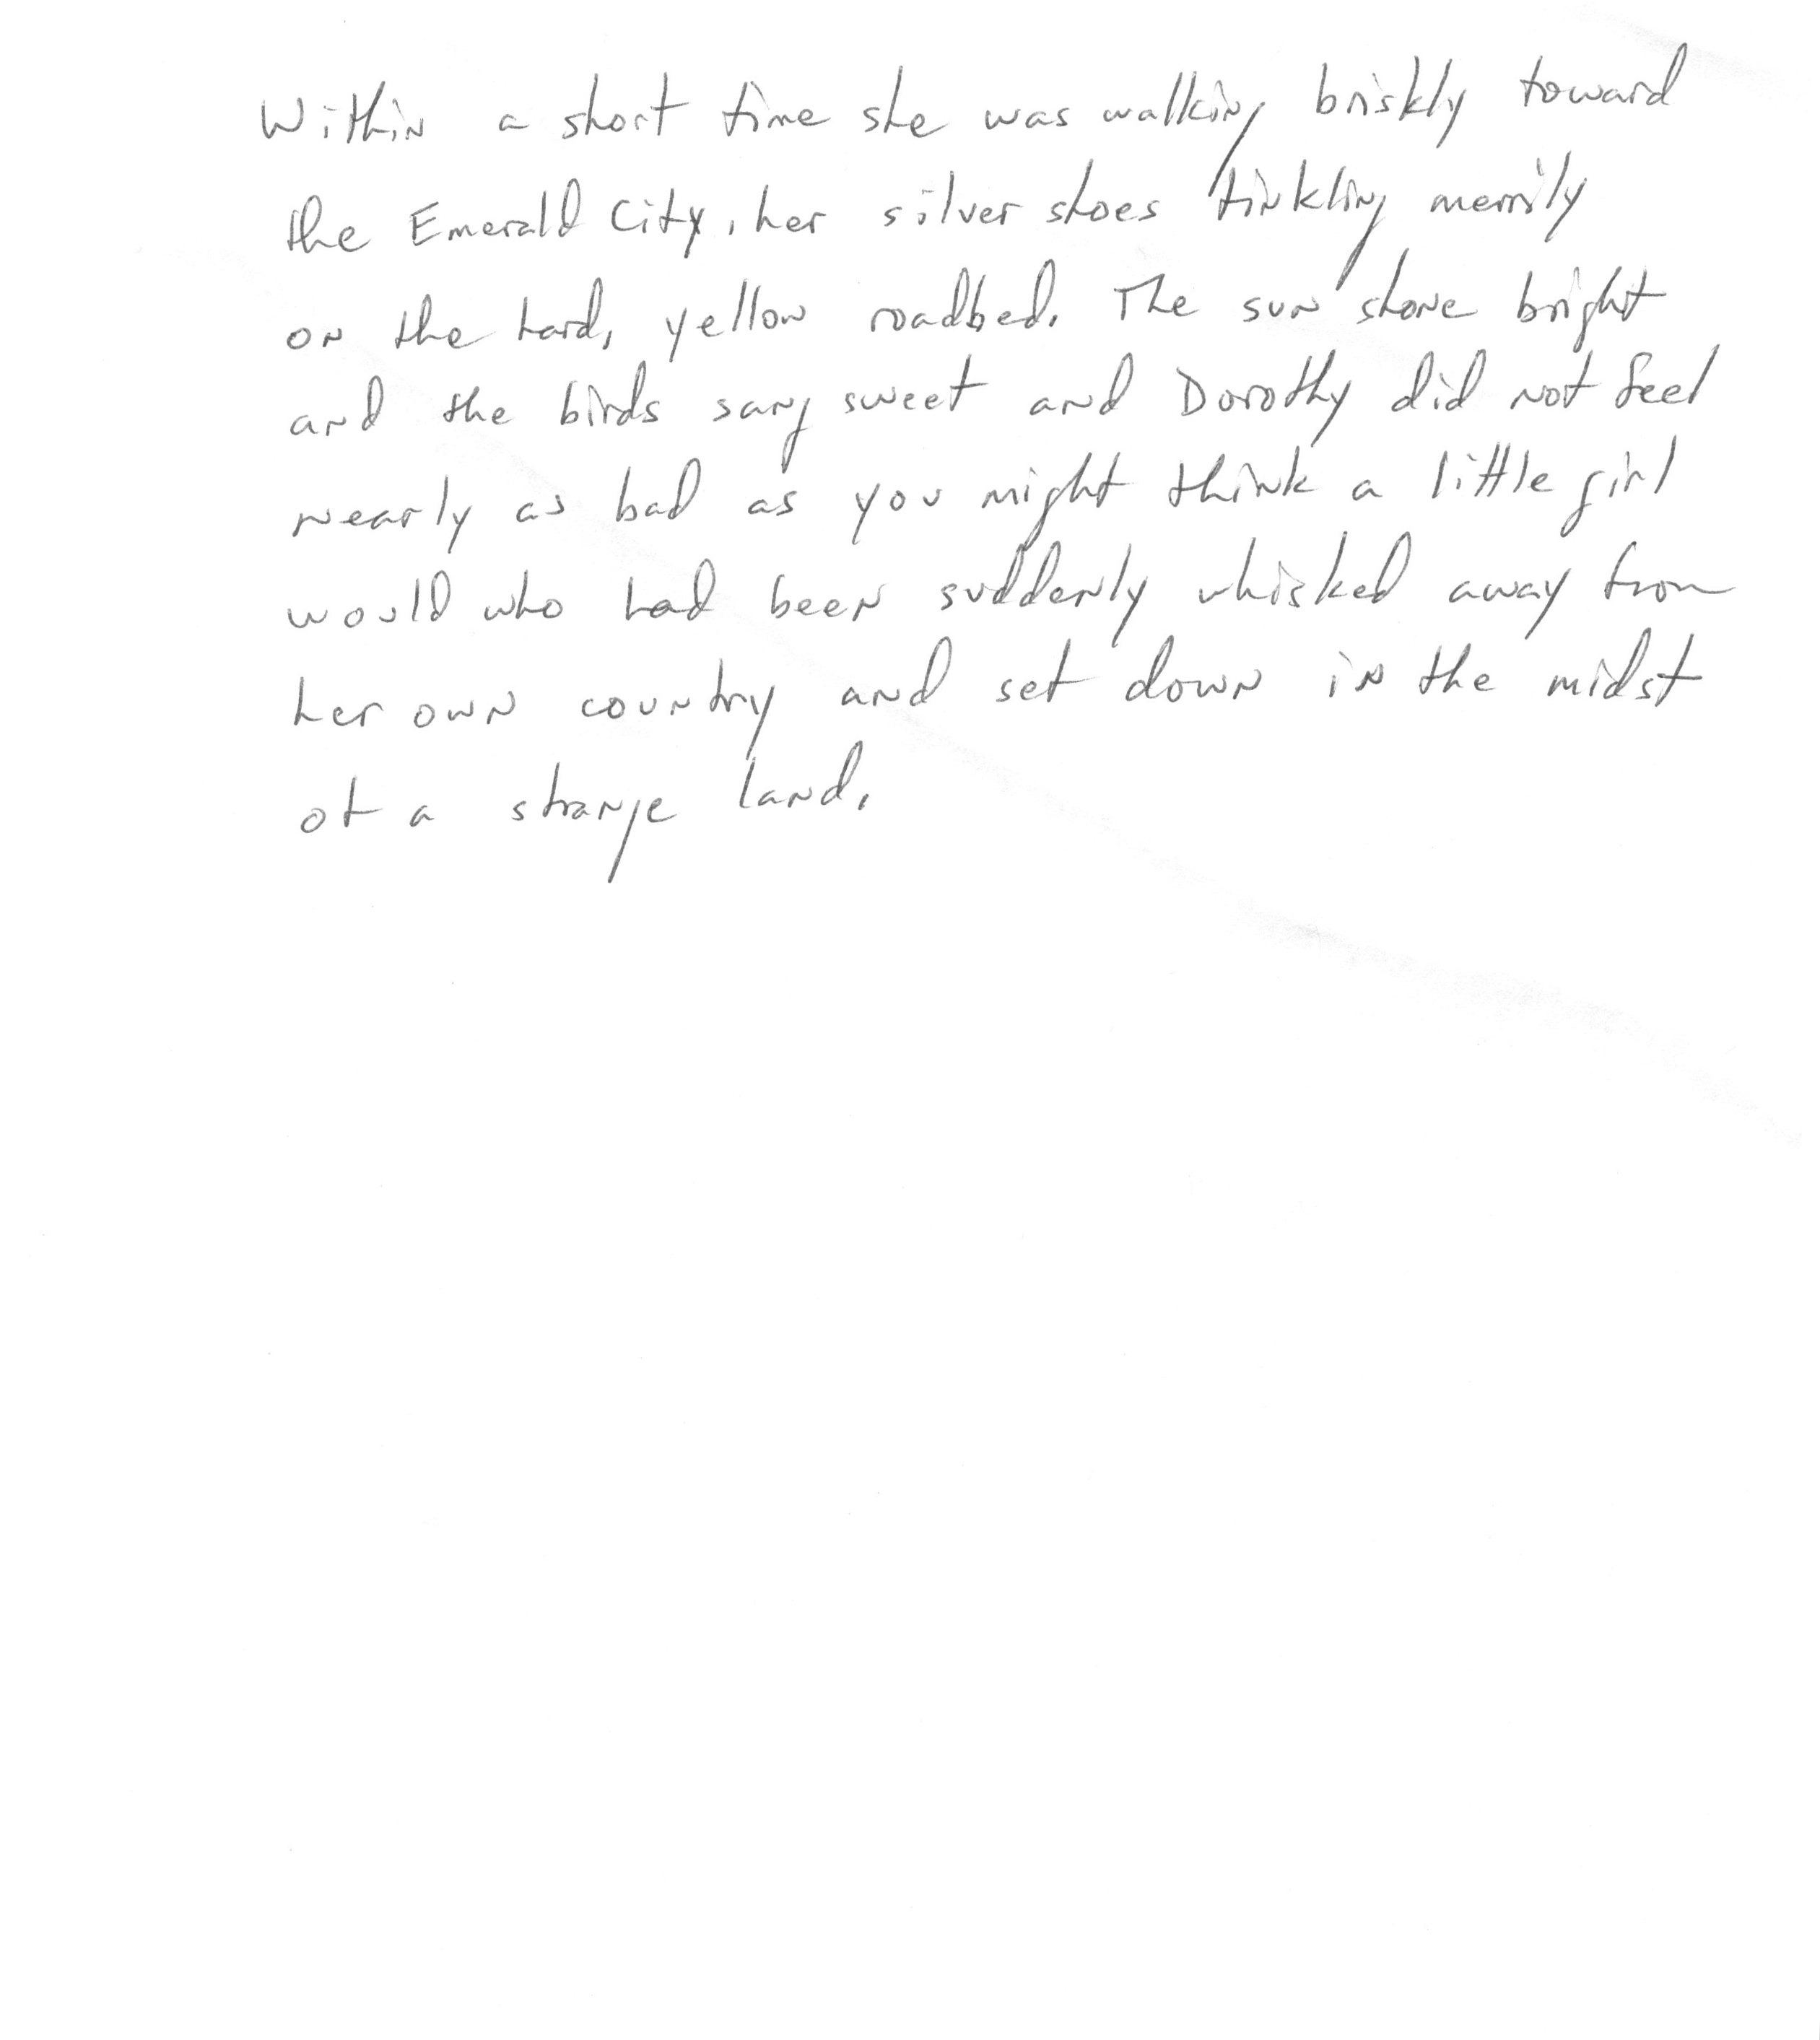 Within a short time she was walking briskly toward
the Emerald City, her silver shoes tinkling merrily
on the hard, yellow roadbed. The sun shone bright
and the birds sang sweet and Dorothy did not feel
nearly as bad as you might think a little girl
would who had been suddenly whisked away from
her own country and set down in the midst
of a strange land.